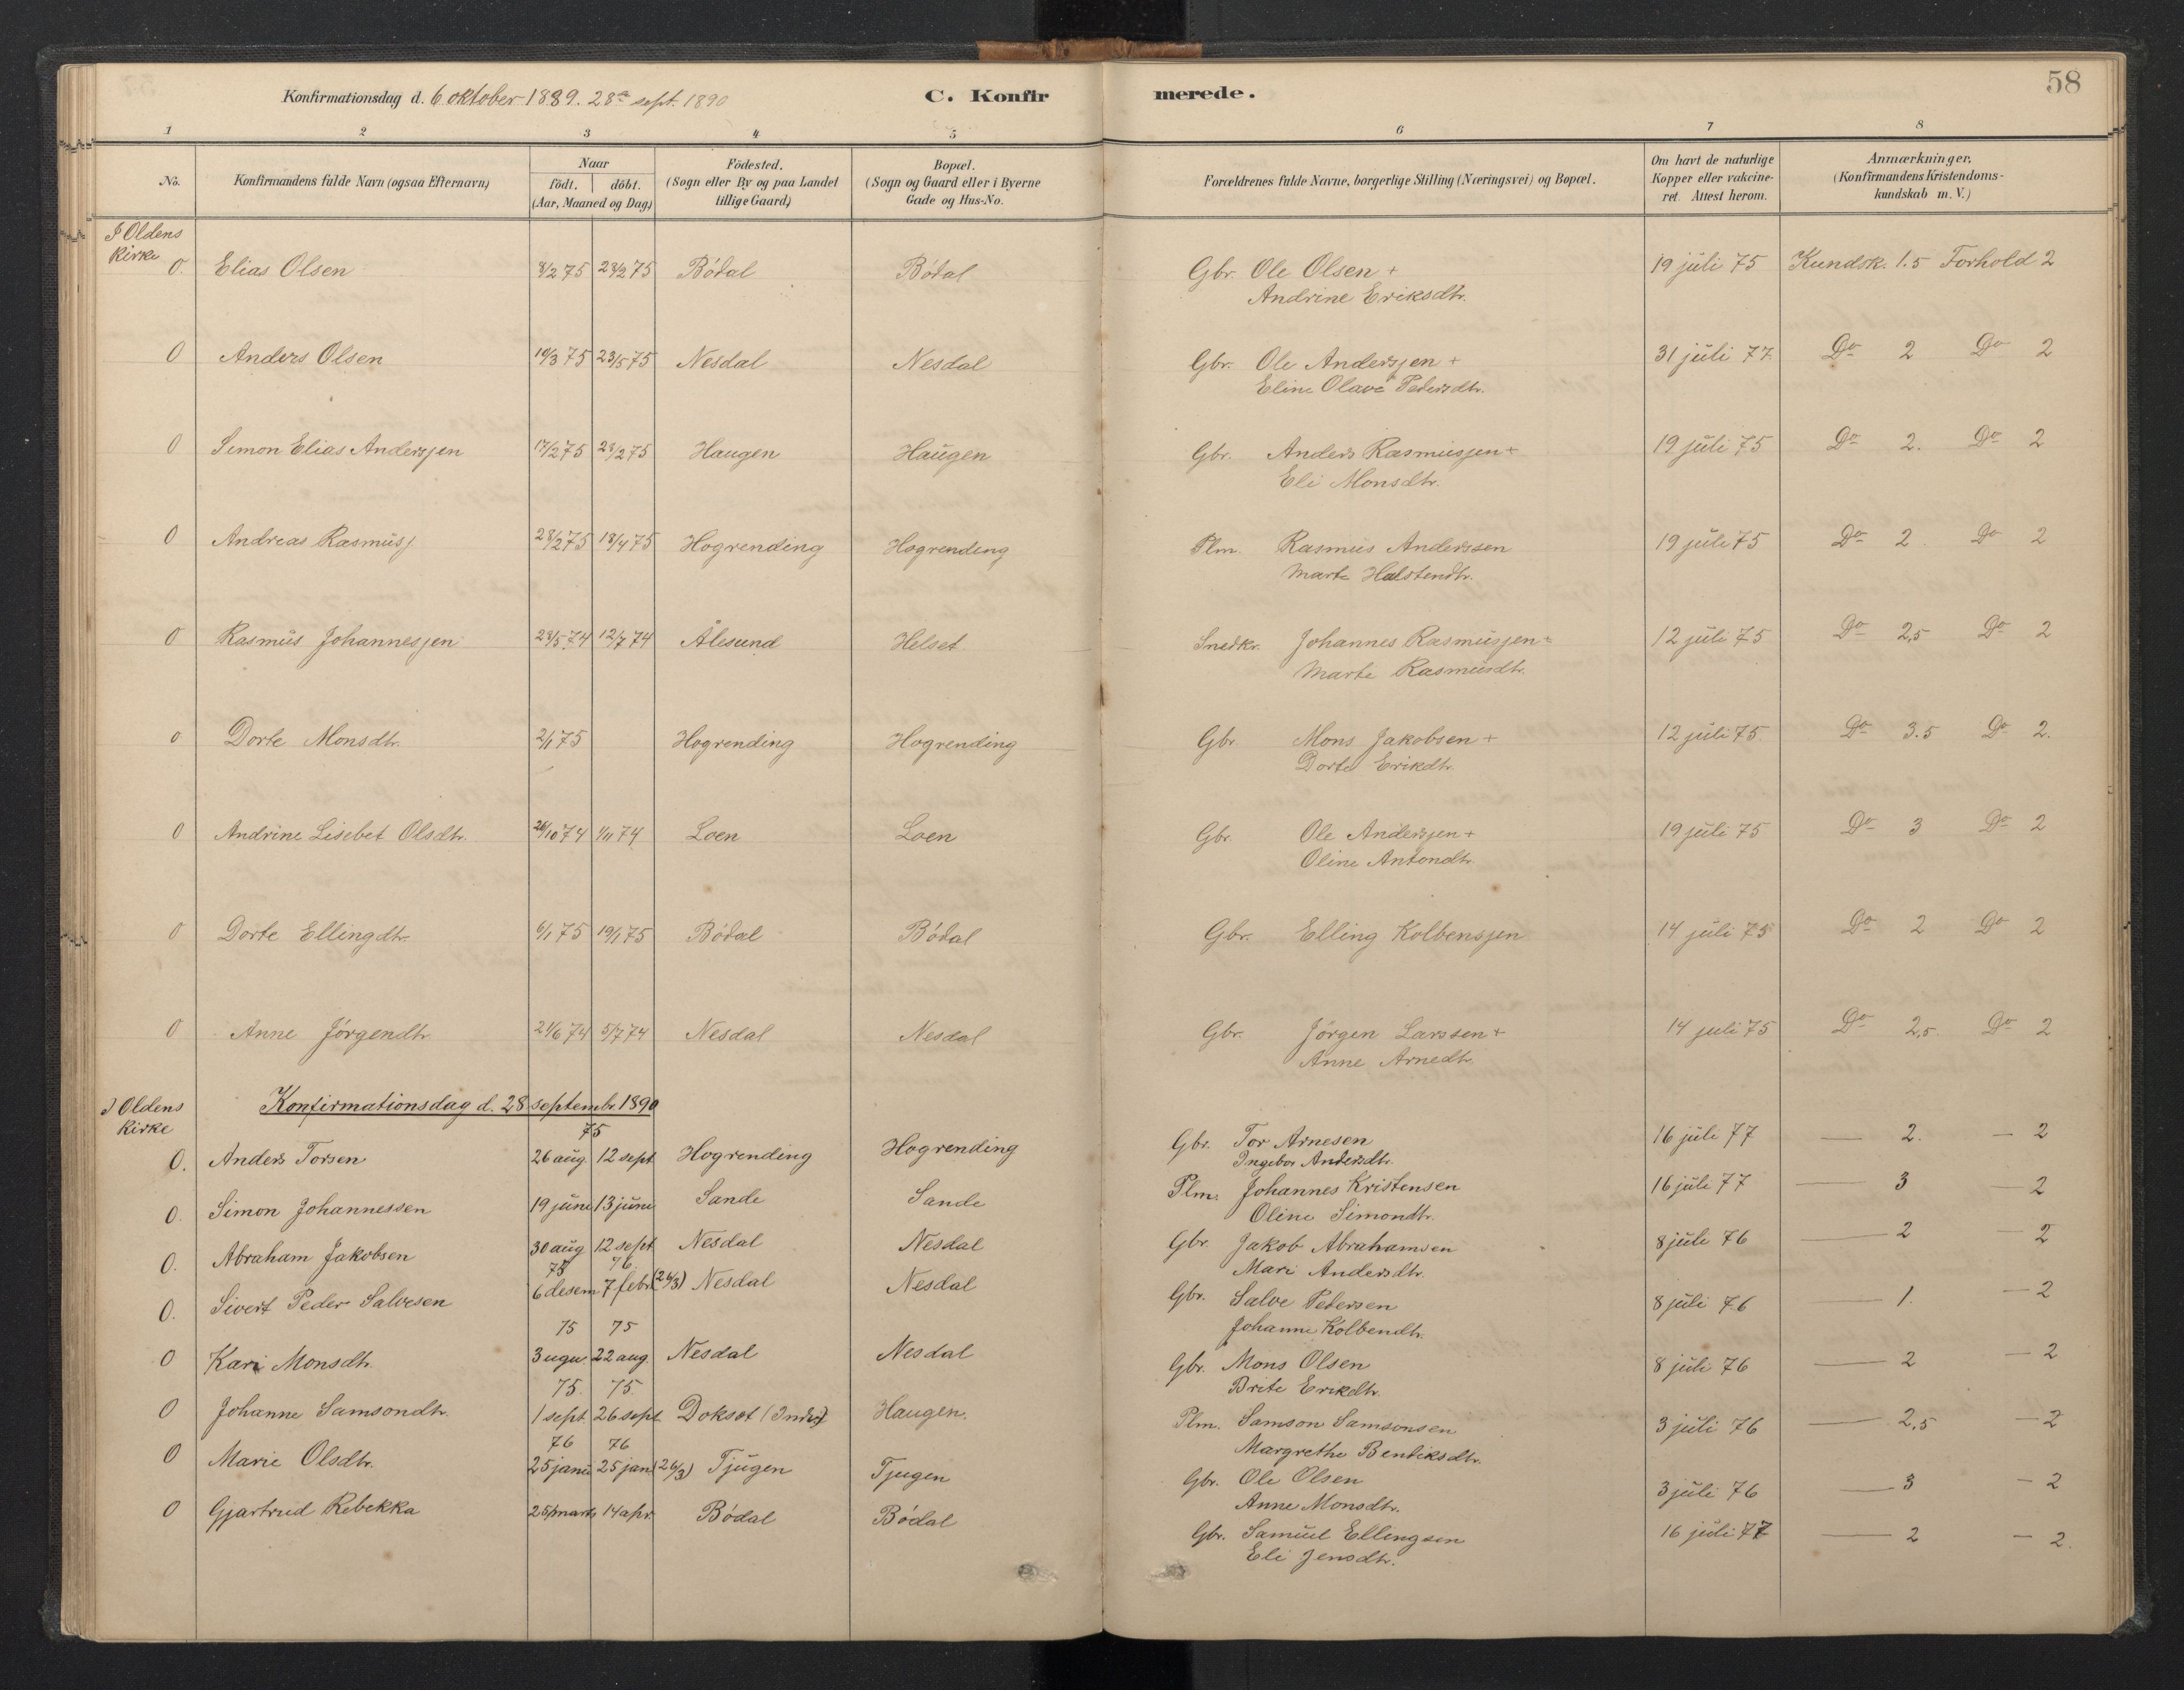 58
Konfirmationsdag d. 6 oktober 1889. 28de sept. 1890
C. Konfirmerede.
1 2 3 4 5 6 7 8
No.
Konfirmandens fulde Navn (ogsaa Efternavn)
Naar
födt. döbt.
(Aar, Maaned og Dag)
Födested.
(Sogn eller By og paa Landet
tillige Gaard)
Bopæl.
(Sogn og Gaard eller i Byerne
Gade og Hus-No.
Forældrenes fulde Navne, borgerlige Stilling (Næringsvei) og Bopæl.
Om havt de naturlige
Kopper eller vakcine-
ret. Attest herom.
Anmærkninger.
(Konfirmandens Kristendoms-
kundskab m. V.)
I Oldens
Kirke
0. Elias Olsen 8/2 75 28/2 75 Bödal Bödal Gbr. Ole Olsen + 19 juli 75 Kundsk. 1.5 Forhold 2
Andrine Eriksdtr.
0 Anders Olsen 19/3 75 23/5 75 Nesdal Nesdal Gbr. Ole Andersjen + 31 juli 77. Do 2 Do 2
Eline Olave Pedersdtr.
0 Simon Elias Andersjen 17/2 75 28/2 75 Haugen Haugen Gbr. Anders Rasmusjen + 19 juli 75 Do 2. Do 2
Eli Monsdtr.
0 Andreas Rasmusj. 28/2 75 18/4 75 Hogrending Hogrending Plm. Rasmus Anderssen 19 juli 75 Do 2 Do 2
Marte Halstendtr.
0 Rasmus Johannesjen 28/5 74 12/7 74 Ålesund Helset Snedkr. Johannes Rasmusjen + 12 juli 75 Do 2,5 Do 2
Marte Rasmusdtr.
0 Dorte Monsdtr. 2/1 75 Hogrending Hogrending Gbr Mons Jakobsen + 12 juli 75. Do 3.5 Do 2.
Dorte Erikdtr.
0 Andrine Lisebet Olsdtr. 26/10 74 1/11 74 Loen Loen Gbr. Ole Andersjen + 19 juli 75 Do 3 Do 2
Oline Antondtr.
0 Dorte Ellingdtr. 6/1 75 19/1 75 Bödal Bödal Gbr. Elling Kolbensjen 14 juli 75 Do 2 Do 2
0 Anne Jörgendtr 21/6 74 5/7 74 Nesdal Nesdal Gbr. Jörgen Larssen + 14 juli 75 Do 2,5. Do 2
Anne Arnedtr.
I Oldens
Kirke
Konfirmationsdag d. 28 septembr. 1890
75
0. Anders Torsen 26 aug. 12 sept Hogrending Hogrending Gbr. Tor Arnesen 16 juli 77 — 2. — 2
Ingebor Andersdtr.
0. Simon Johannessen 19 juni 13 juni Sande Sande Plm. Johannes Kristensen 16 juli 77 — 3 — 2
Oline Simondtr.
0. Abraham Jakobsen 30 aug 12 sept Nesdal Nesdal Gbr. Jakob Abrahamsen 8 juli 76 — 2 — 2
Mari Andersdtr.
75 76
0. Sivert Peder Salvesen 6 desem 7 febr. (26/3) Nesdal Nesdal Gbr. Salve Pedersen 8 juli 76 — 1. — 2
Johanne Kolbendtr.
75 75
0 Kari Monsdtr. 3 22 aug. Nesdal Nesdal Gbr. Mons Olsen 8 juli 76 — 2 — 2
Brite Erikdtr.
75. 75.
0 Johanne Samsondtr. 1 sept. 26 sept Haugen. Plm. Samson Samsonsen 3 juli 76 — 2,5 — 2
Margrethe Bentiksdtr.
76 76
0 Marie Olsdtr. 25 janu 25 jan (26/3) Tjugen Tjugen Gbr. Ole Olsen 3 juli 76 — 3 — 2
Anne Monsdtr.
0 Gjartrud Rebekka 25 marts 14 apr. Bödal Bödal Gbr. Samuel Ellingsen 16 juli 77 — 2 — 2.
Eli Jensdtr.